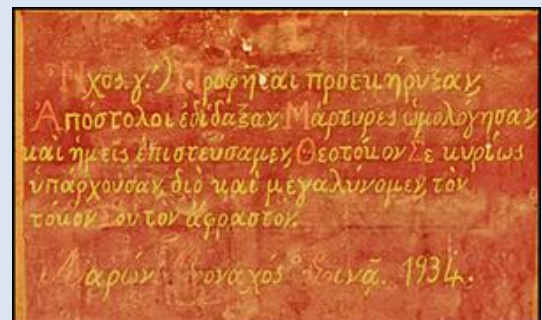 Ἦχος γ΄.) Προφῆται προεκήρυξαν,
Ἀπόστολοι ἐδίδαξαν, Μάρτυρες ὡμολόγησαν,
καὶ ἡμεῖς ἐπιστεύσαμεν, Θεοτόκον Σε κυρίως
ὑπάρχουσαν, διὸ καὶ μεγαλύνομεν, τὸν
τόκον Σου τὸν ἄφραστον.
Μαρών Μοναχός Σινᾶ. 1934.